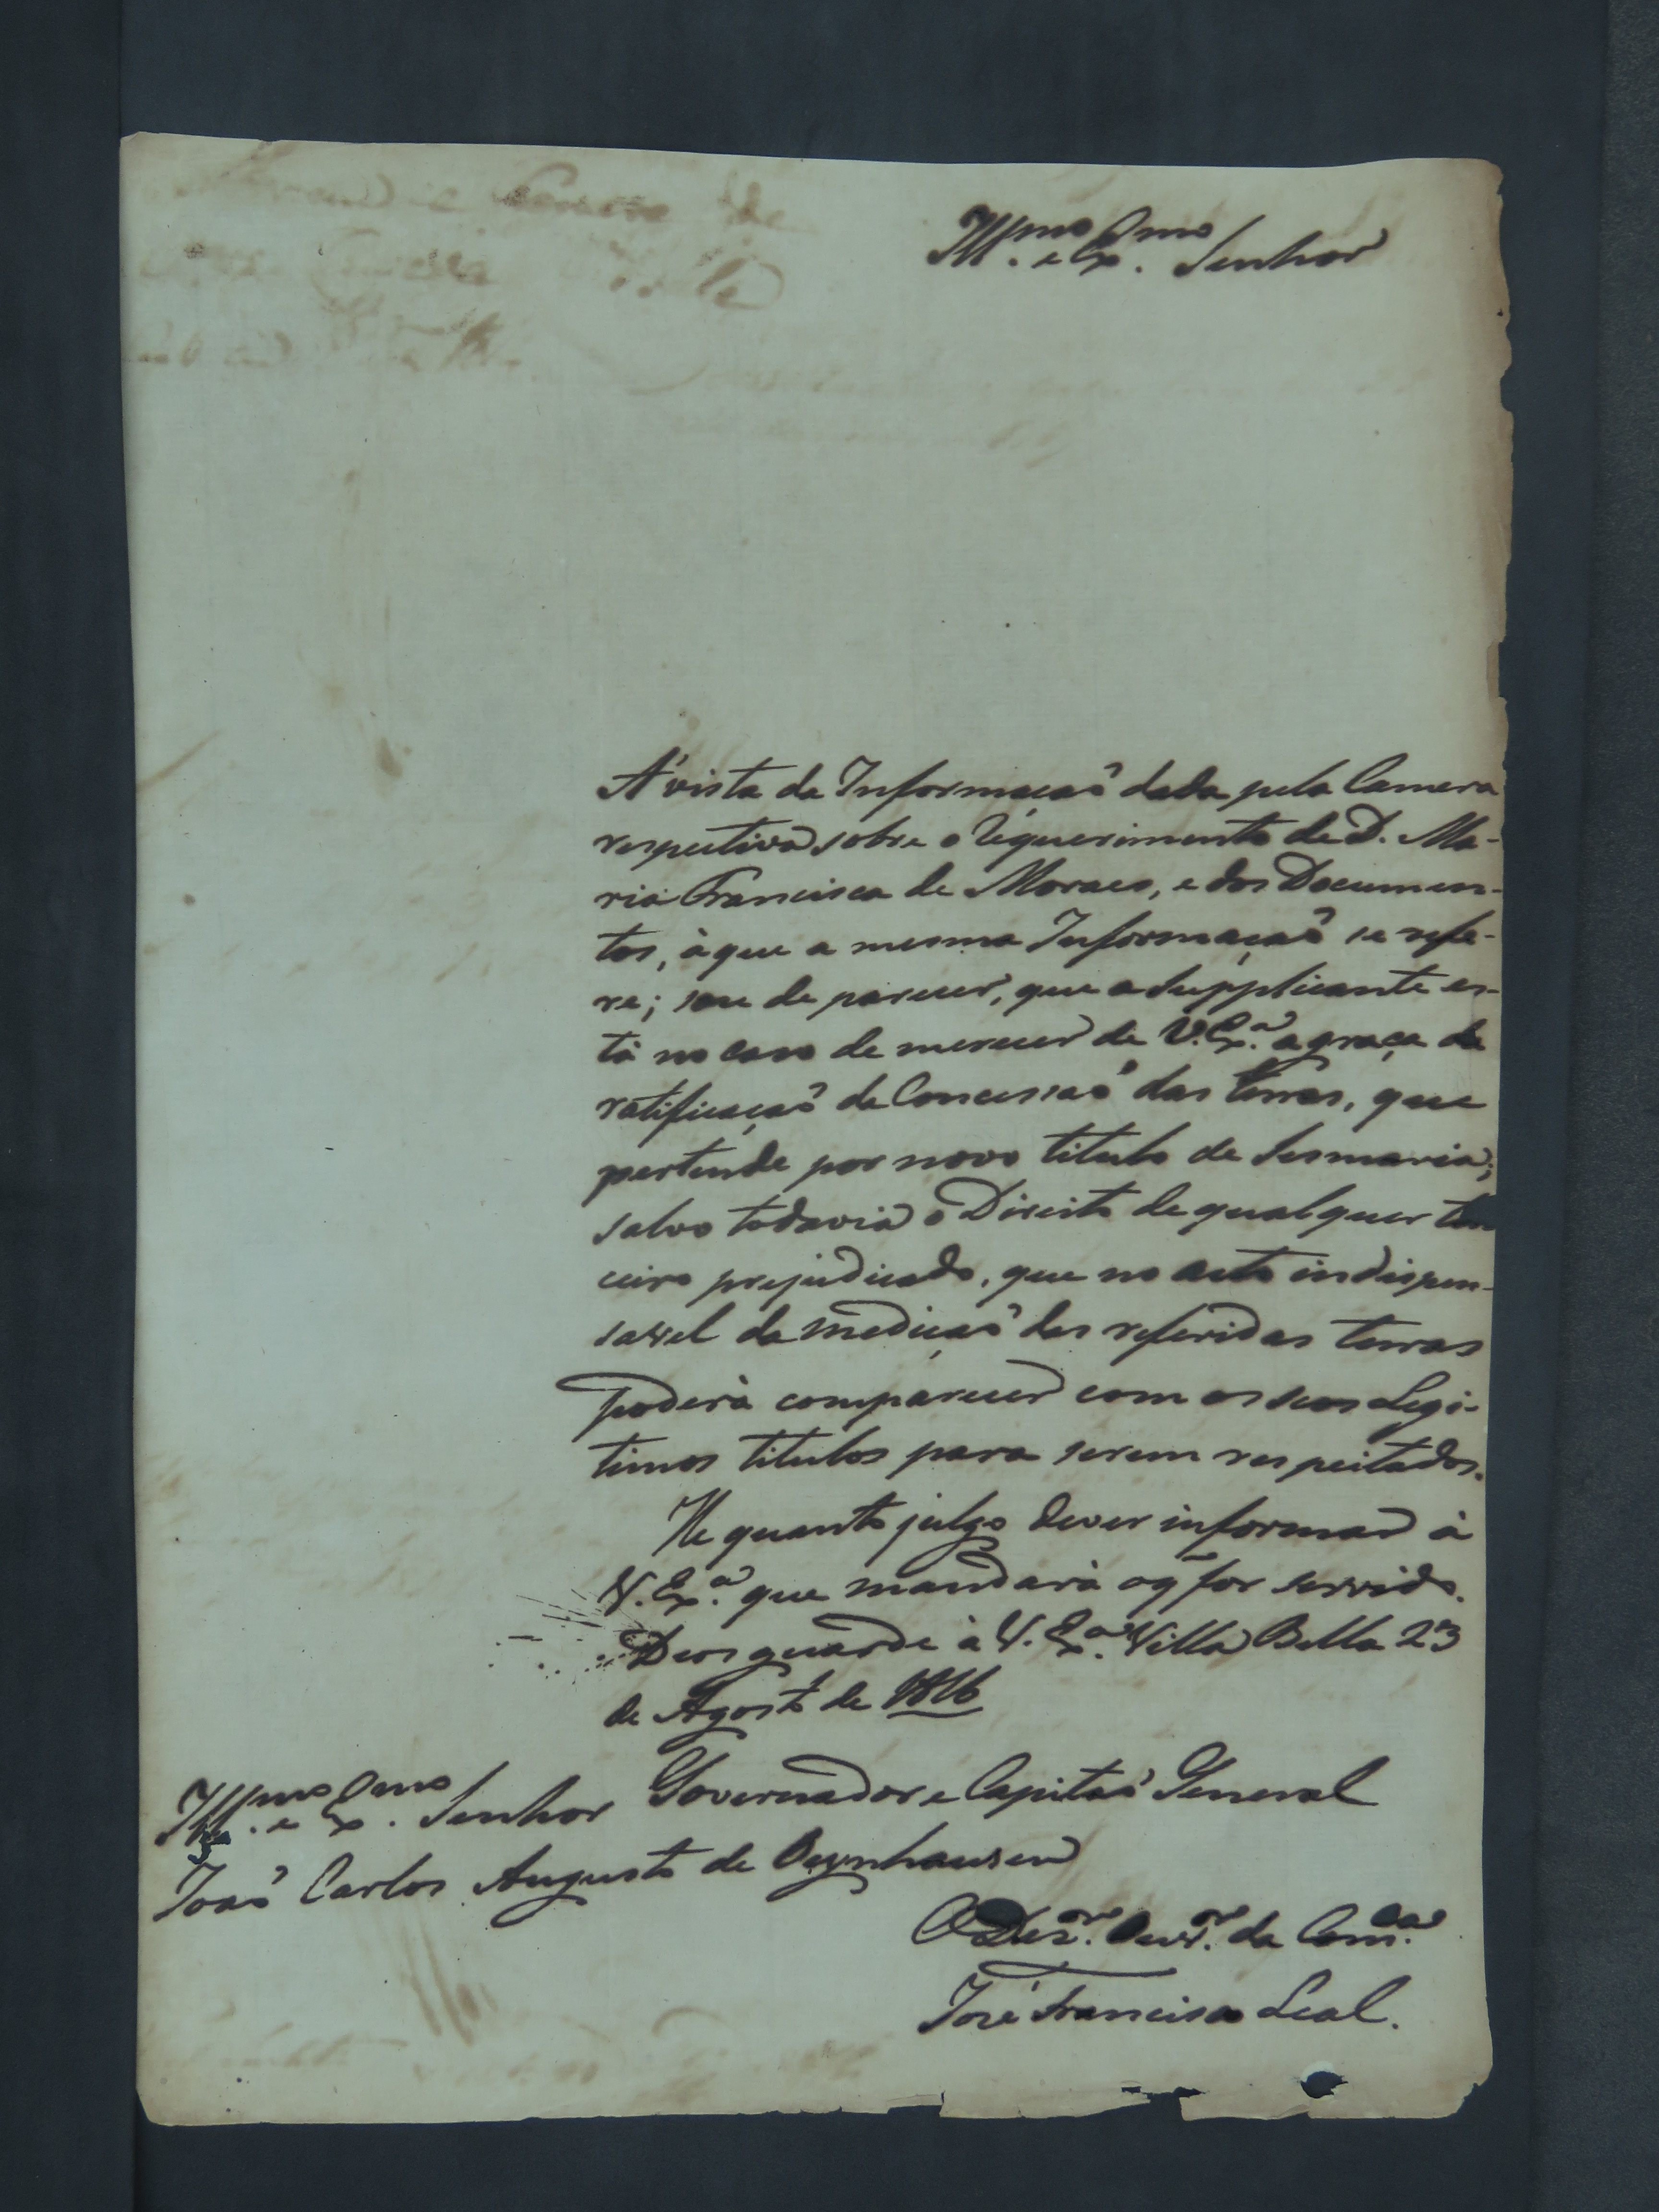 Ill.mo e Ex.mo Senhor
A' vista da Informaçaõ dada pela Camera
respectiva sobre o Requerimento de D. Ma-
ria Francisca de Moraes, e dos Documen-
tos, à que a mesma Informaçaõ se refe-
re; sou de parecer, que a Supplicante es-
tà no caso de merecer de V. Ex.a a graça da
ratificaçaõ da Concessaõ das terras, que
pertende por novo titulo de Sesmaria;
salvo todavia o Direito de qualquer ter
ceiro prejudicado, que no acto indispen-
savel da mediçaõ das referidas terras
poderà comparecer com os seos Legi-
timos titulos para serem respeitados.
He quanto julgo dever informar à
V. Ex.a que mandarà o q̃ for servido.
Deos guarde à V. Ex.a Villa Bella 23
de Agosto de 1816
Ill.mo e Ex.mo Senhor Governador e Capitaõ General
Joaõ Carlos Augusto de Oeynhausen
O Dez.or Ouv.or da Com.ca
José Francisco Leal.